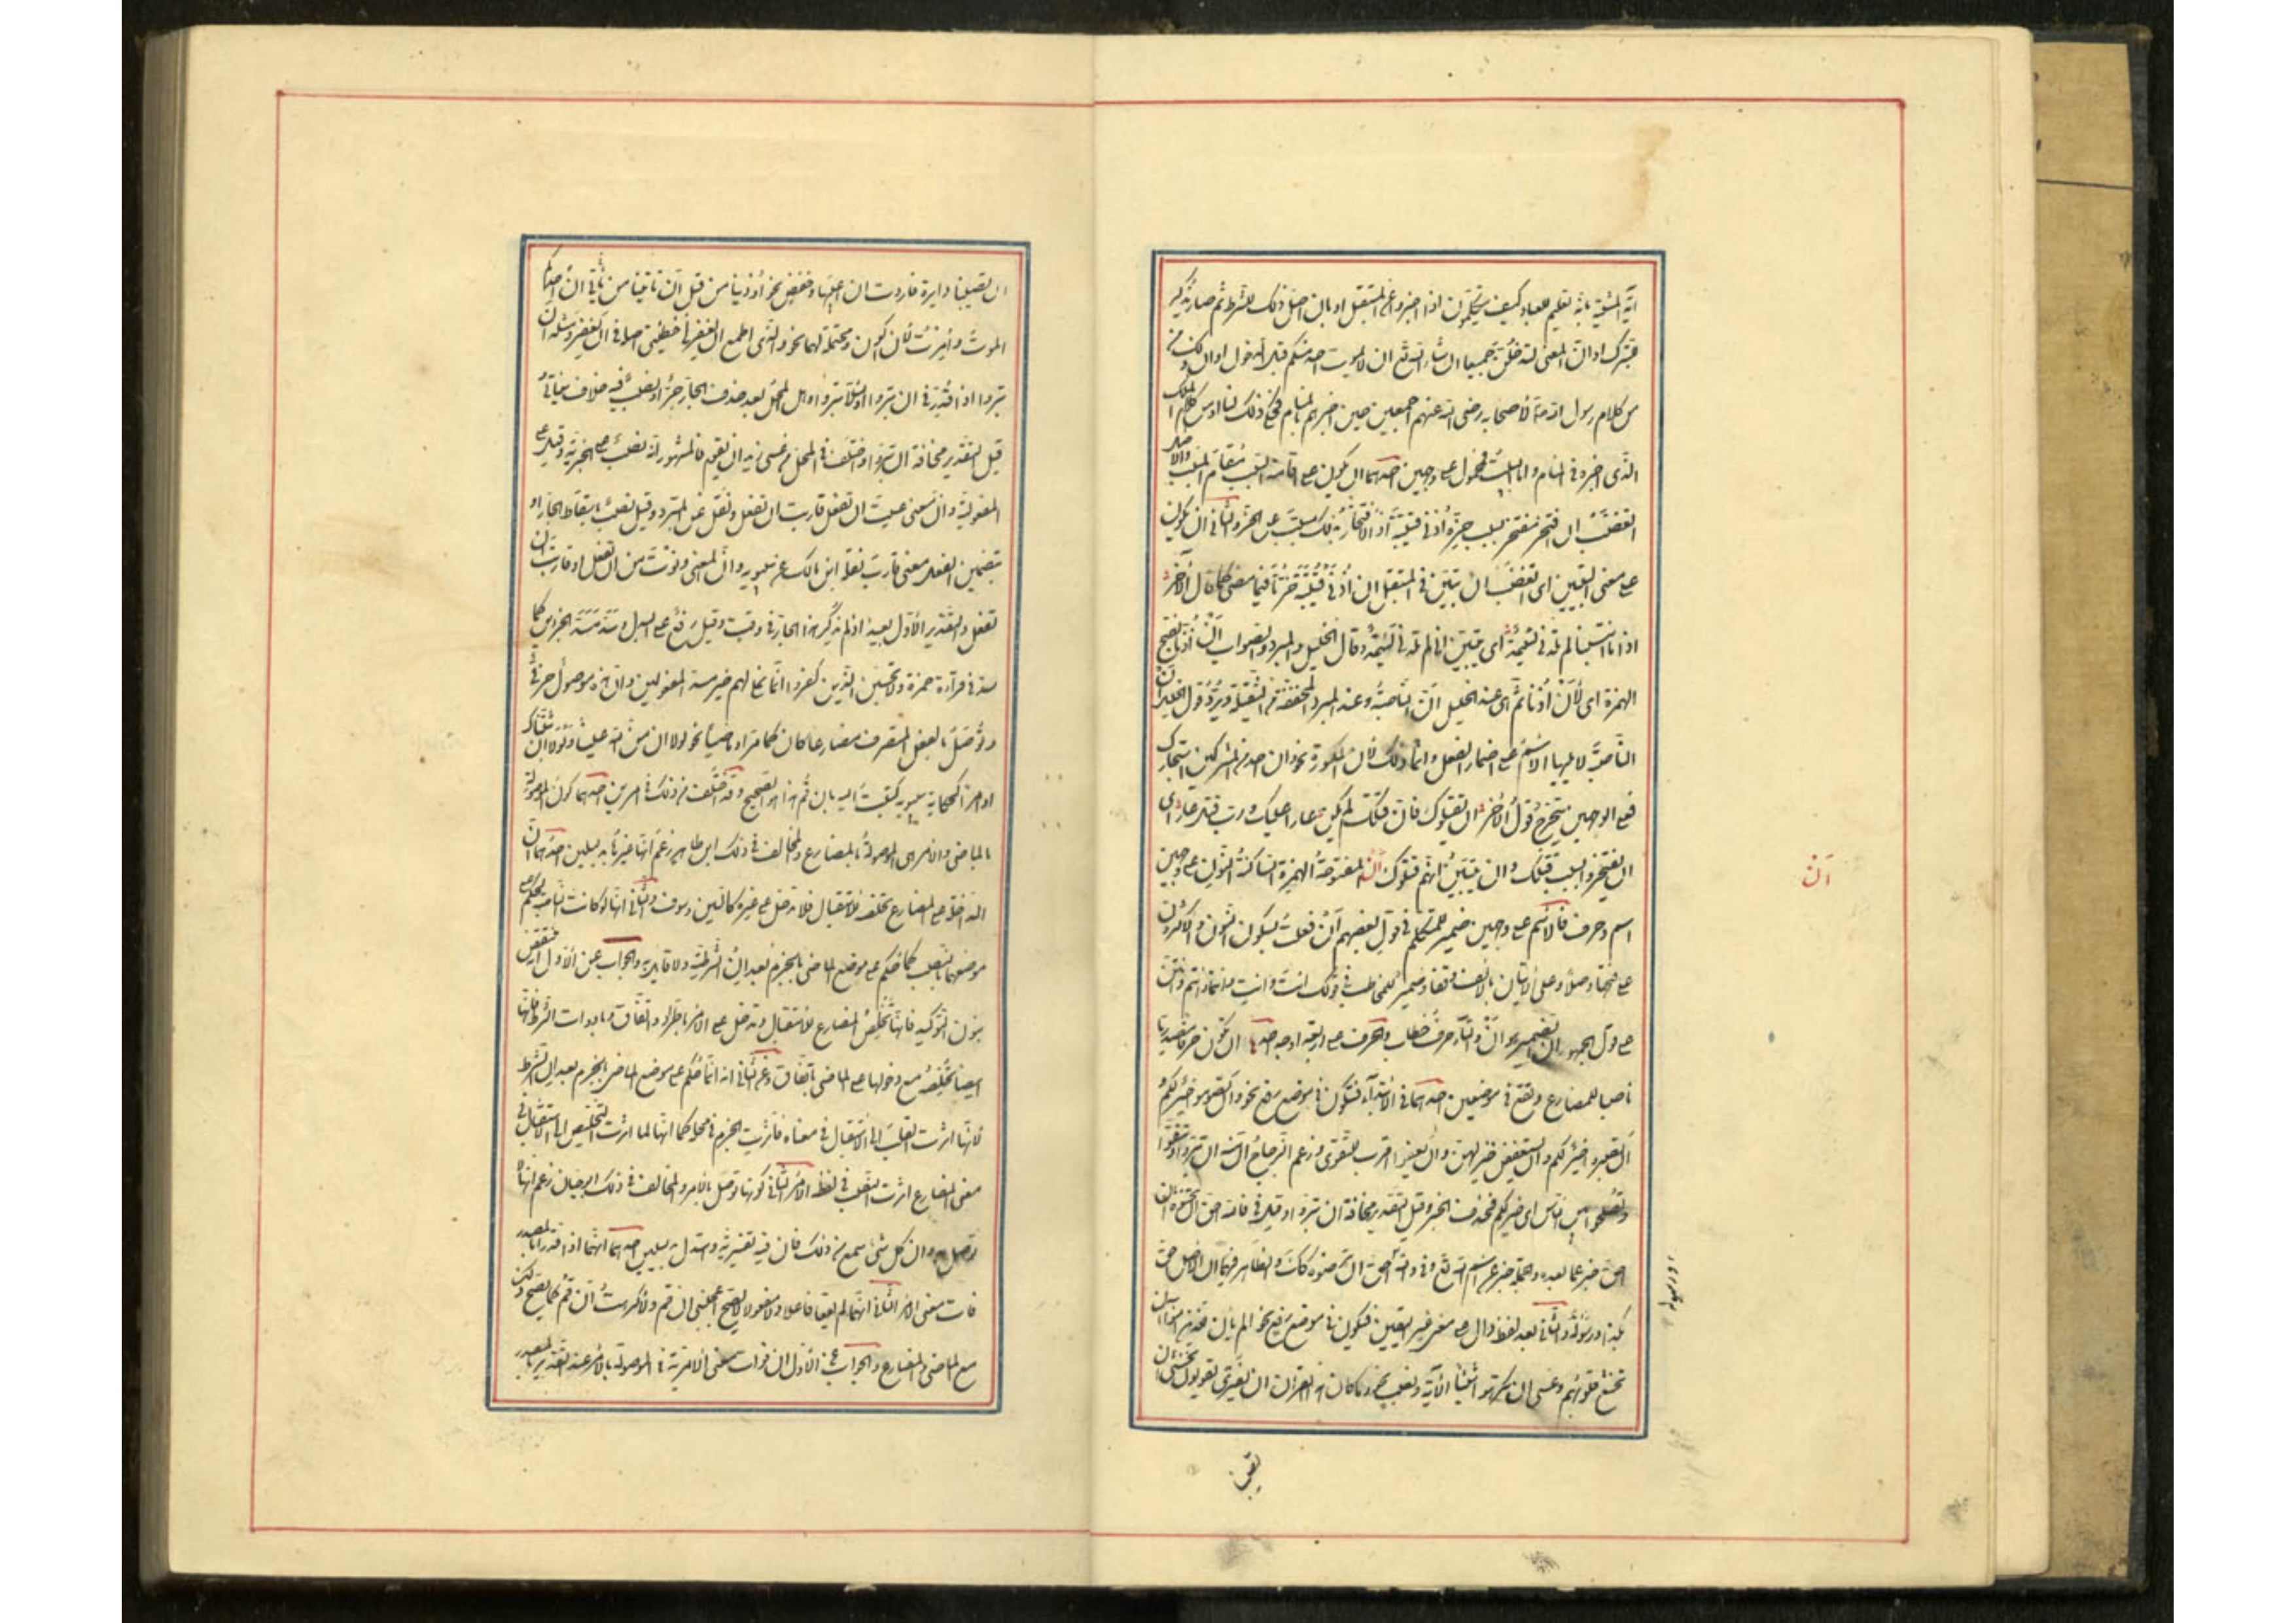 آية المشية بانه تعليم للعباد كيف يتكلمون اذا اخبروا عن المستقبل او بان اصل ذلك للشرط ثم صار يذكر
للتبرك او ان المعنى لتدخلن جميعا ان شاء الله تع ان لا يموت احد منكم قبل الدخول
من كلام رسول الله لاصحابه رضى الله عنهم اجمعين حين اخبرهم بالمنام فحكى ذلك لنا او من كلام الملك
الذى اخبره فى المنام واما البيت فمحمول على وجهين احدهما ان يكون على اقامة السبب مقام المسبب والاصل
اتغضب ان افتخر مفتخر بسبب حز اذنى قتيبة اذ الافتخار بذلك مسبب عن الحز والثانى ان يكون
على معنى التبيين اى اتغضب ان تبين فى المستقبل ان اذنى قتيبة حزتا فيما مضى كما قال الآخر
اذا ما انتسبنا لم تلدنى لئيمة اى يتبين انى لم تلدنى لئيمة وقال الخليل والمبرد والصواب ان اذنا بفتح
الهمزة اى لأن اذنا ثم هى عند الخليل ان الناصبة وعند المبرد المخففة من الثقيلة ويرد قول الخليل ان
الناصبة لا يليها الاسم على اضمار الفعل وانما ذلك لان المكسورة نحو وان احد من المشركين استجارك
فعلى الوجهين يتخرج قول الآخر ان يقتلوك فان قتلك لم يكن عارا عليك ورب قتل عار اى
ان يفتخروا بسبب قتلك او ان يتبين انهم قتلوك أن المفتوحة الهمزة الساكنة النون على وجهين
أن
اسم وحرف فالاسم على وجهين ضمير للمتكلم فى قول بعضهم أن فعلت بسكون النون والاكثرون
على فتحها وصلا وعلى الاتيان بالالف وقفا وضمير للمخاطب فى قولك انت وانت وانتما وانتم وانتن
على قول الجمهور ان الضمير هو ان والتاء حرف خطاب والحرف على اربعة اوجه احدها ان تكون حرفا مصدريا
ناصبا للمضارع وتقع فى موضعين احدهما فى الابتداء فتكون فى موضع رفع نحو وان تصوموا خير لكم
وان تصبروا خير لكم وان يستعففن خير لهن وان تعفوا اقرب للتقوى وزعم الزجاج ان منه ان تبروا وتتقوا
وتصلحوا بين الناس اى خير لكم فحذف الخبر وقيل التقدير مخافة ان تبروا وقيل فى فالله احق ان تخشوه ان
احق خبر عما بعده والجملة خبر عن اسم الله تع وفى والله احق ان يرضوه كذلك والظاهر فيهما ان الاصل احق
بكذا ورسوله والثانى بعد لفظ دال على معنى غير اليقين فتكون فى موضع رفع نحو الم يان للذين امنوا ان
تخشع قلوبهم وعسى ان تكرهوا شيئا الآية ونصب نحو وما كان هذا القران ان يفترى يقولون نخشى ان
ان تصيبنا دايرة فاردت ان اعيبها وخفض نحو اوذينا من قبل ان تاتينا من قبل ان ياتى احدكم
الموت وامرت لان اكون ومحتملة لهما نحو والذى اطمع ان يغفر لى خطيئتى اصله فى ان يغفر ومثله ان
تبروا اذا قدر فى ان تبروا او لئلا تبروا وهل المحل بعد حذف الجار جر او نصب فيه خلاف سياتى
قيل التقدير مخافة ان تبروا واختلف فى المحل من عسى زيد ان يقوم فالمشهور انه نصب على الخبرية وقيل على
المفعولية وان معنى عسيت ان تفعل قاربت ان تفعل ونقل عن المبرد وقيل نصب باسقاط الجار او
بتضمين الفعل معنى قارب نقله ابن مالك عن سيبويه وان المعنى دنوت من ان تفعل او قاربت ان
تفعل والتقدير الاول بعيد اذ لم يذكر هذا الجار فى وقت وقيل رفع على البدل سد مسد الجزئين كما
سد فى قراءة حمزة ولا تحسبن الذين كفروا انما نملى لهم خير مسد المفعولين وان هذه موصول حرفى
وتوصل بالفعل المتصرف مضارعا كان كما مر او ماضيا نحو لولا ان من الله علينا ولولا ان ثبتناك
او امرا كحكاية سيبويه كتبت اليه بان قم هذا هو الصحيح وقد اختلف من ذلك فى امرين احدهما كون الموصولة
بالماضى والامر هى الموصولة بالمضارع والمخالف فى ذلك ابن طاهر زعم انها غيرها بدليلين احدهما ان
الداخلة على المضارع تخلصه للاستقبال فلا تدخل على غيره كالسين وسوف والثانى انها لو كانت الناصبة لحكم على
موضعهما بالنصب كما حكم على موضع الماضى بالجزم بعد ان الشرطية ولا قائل به والجواب عن الاول انه منتقض
بنون التوكيد فانها تخلص المضارع للاستقبال وتدخل على الامر باطراد واتفاق وبادوات الشرط فانها
ايضا تخلصه مع دخولها على الماضى باتفاق وعن الثانى انه انما حكم على موضع الماضى بالجزم بعد ان الشرطية
لانها اثرت القلب الى الاستقبال فى معناه فاثرت الجزم فى محله كما انها لما اثرت التخليص الى الاستقبال فى
معنى المضارع اثرت النصب فى لفظه الامر الثانى كونها توصل بالامر والمخالف فى ذلك ابو حيان زعم انها لا
توصل به وان كل شىء سمع من ذلك فان فيه تفسيرية واستدل بدليلين احدهما انهما اذا قدرا بالمصدر
فات معنى الامر الثانى انهما لم يقعا فاعلا ولا مفعولا لا يصح اعجبنى ان قم ولا كرهت ان قم كما يصح ذلك
مع الماضى والمضارع والجواب عن الاول ان فوات معنى الامرية فى الموصولة بالامر عند التقدير بالمصدر